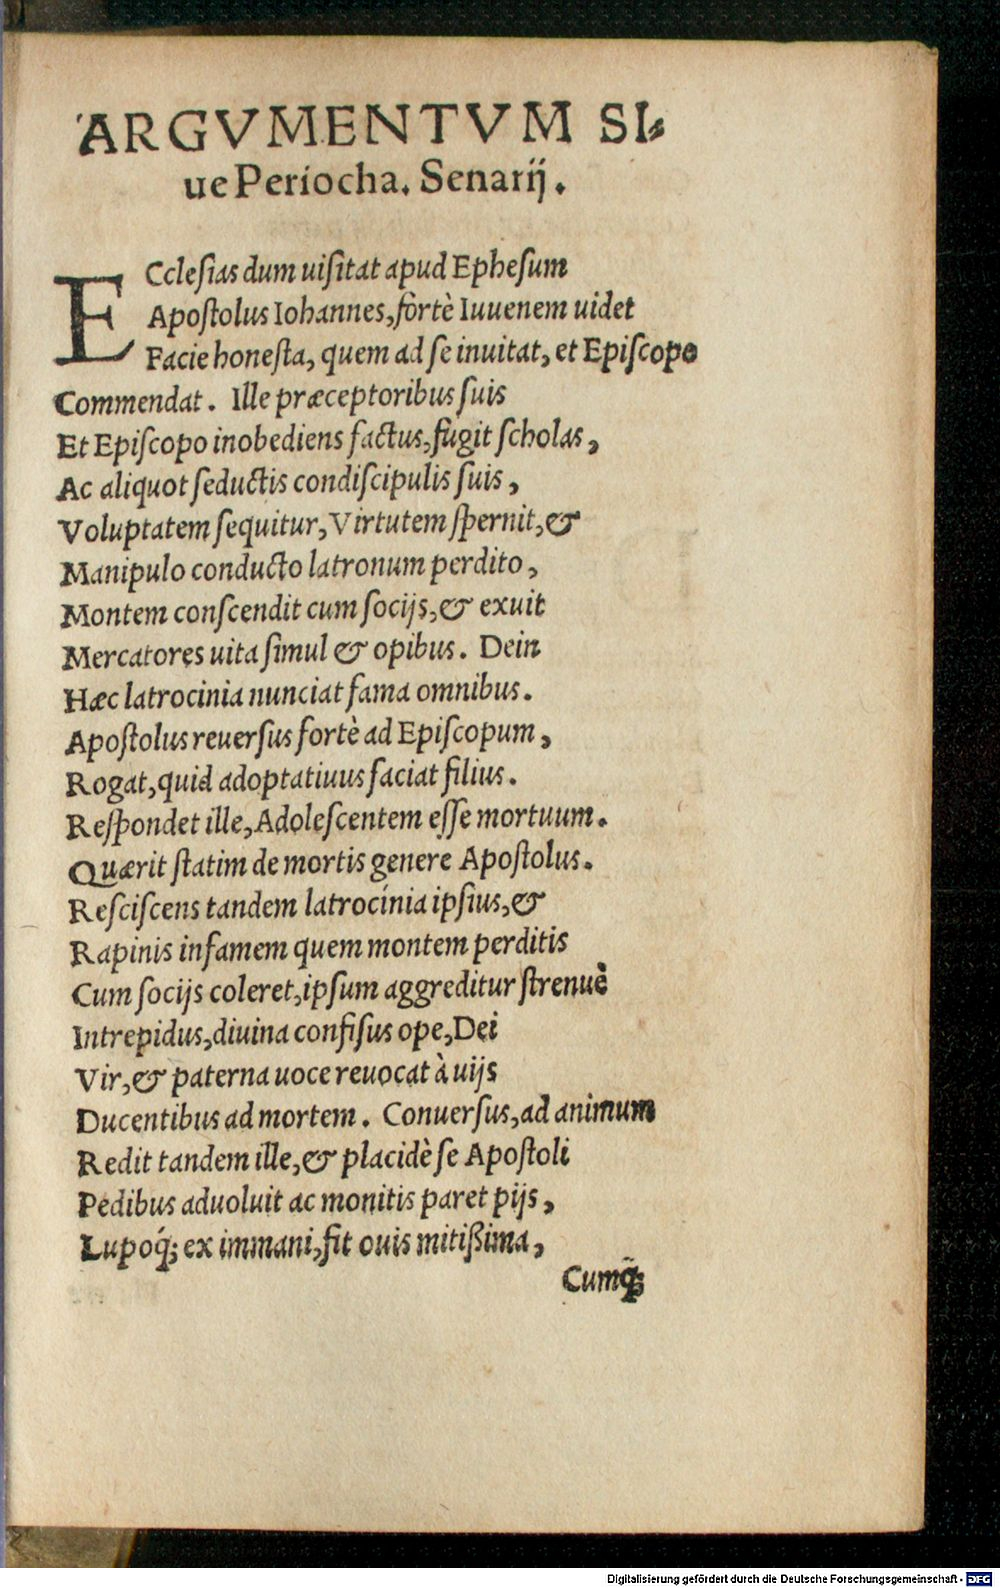 ARGVMENTVM SI-
ue Periocha. Senarij.
ECclesias dum uisitat apud Ephesum
Apostolus Iohannes, fortè Iuuenem uidet
Facie honesta, quem ad se inuitat, et Episcopo
Commendat. Ille præceptoribus suis
Et Episcopo inobediens factus, fugit scholas,
Ac aliquot seductis condiscipulis suis,
Voluptatem sequitur, Virtutem spernit, &
Manipulo conducto latronum perdito,
Montem conscendit cum socijs, & exuit
Mercatores uita simul & opibus. Dein
Hæc latrocinia nunciat fama omnibus.
Apostolus reuersus fortè ad Episcopum,
Rogat, quid adoptatiuus faciat filius.
Respondet ille, Adolescentem esse mortuum.
Quærit statim de mortis genere Apostolus.
Resciscens tandem latrocinia ipsius, &
Rapinis infamem quem montem perditis
Cum socijs coleret, ipsum aggreditur strenuè
Intrepidus, diuina confisus ope, Dei
Vir, & paterna uoce reuocat à uijs
Ducentibus ad mortem. Conuersus, ad animum
Redit tandem ille, & placidè se Apostoli
Pedibus aduoluit ac monitis paret pijs,
Lupoq́; ex immani, fit ouis mitißima,
Cumq̃;
Digitalisierung gefördert durch die Deutsche Forschungsgemeinschaft - DFG